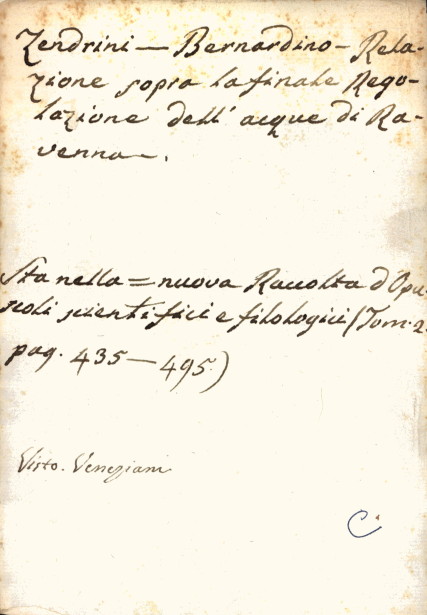 Zendrini — Bernardino — Rela-
zione sopra la finale Rego-
lazione dell' acque di Ra-
venna —.
Sta nella = nuova Raccolta d'Opu-
scoli scientifici e filologici (Tom. 2.
pag. 435 — 495.)
Visto. Veneziani
C.